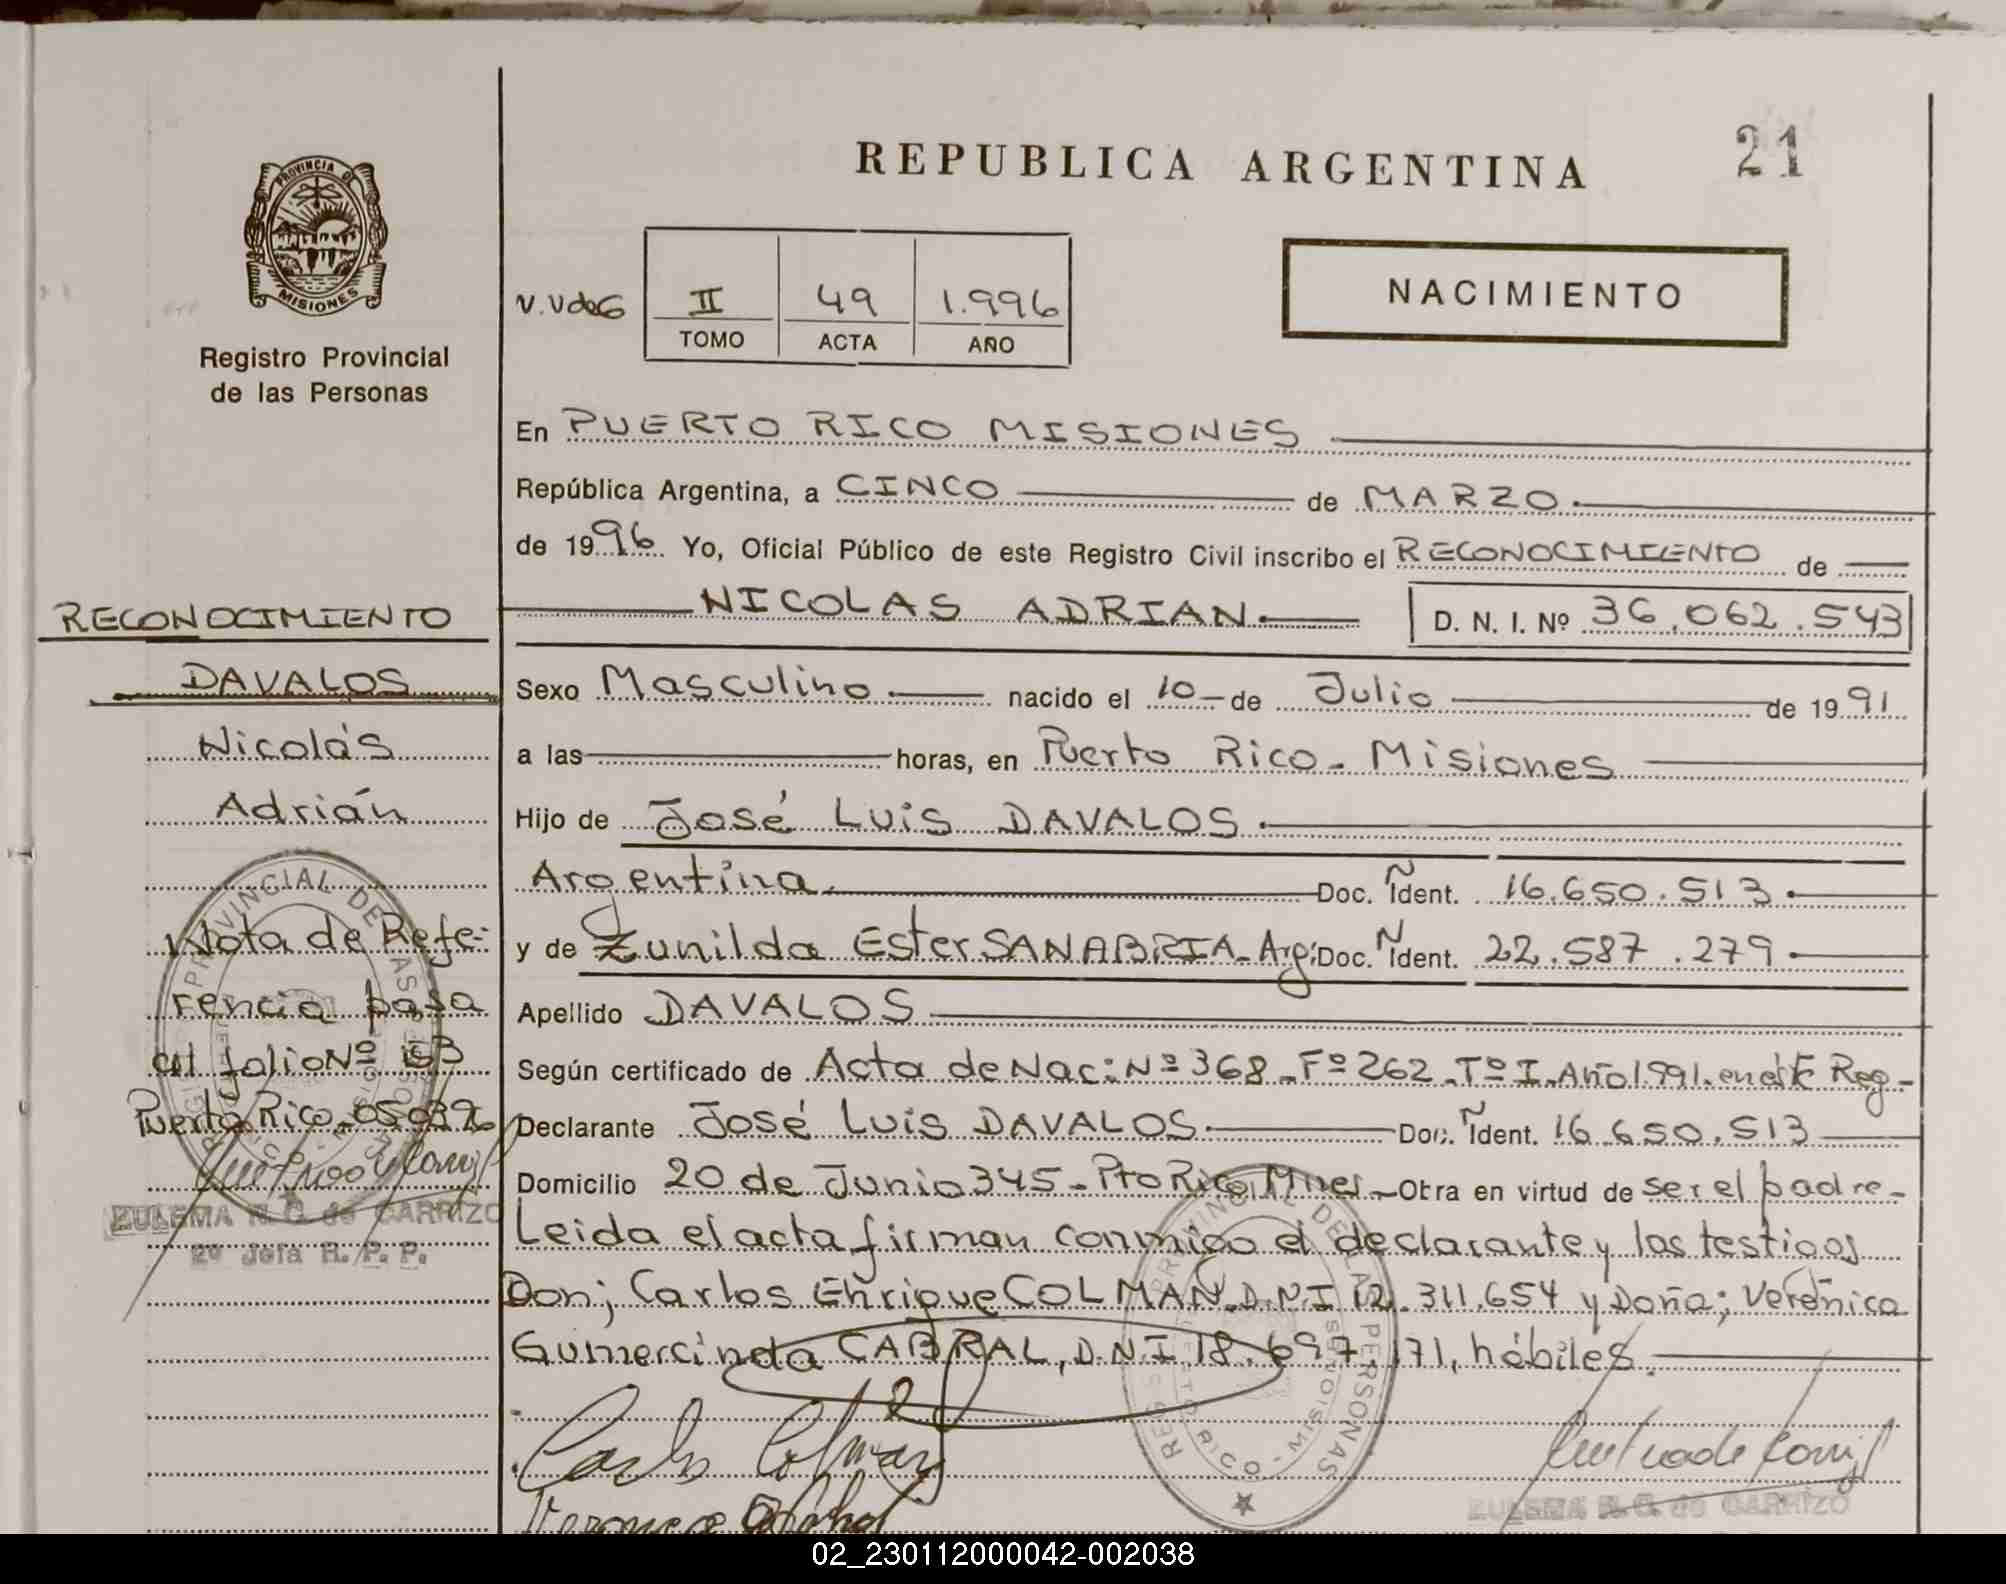 REPUBLICA ARGENTINA
21
PROVINCIA DE
MISIONES
Registro Provincial
de las Personas
II
49
1.996
TOMO
ACTA
AÑO
NACIMIENTO
En PUERTO RICO MISIONES
República Argentina, a CINCO de MARZO.
de 1996 Yo, Oficial Público de este Registro Civil inscribo el RECONOCIMIENTO de
NICOLAS ADRIAN.
D. N. I. Nº 36.062.543
Sexo Masculino nacido el 10 de Julio de 1991
a las horas, en Puerto Rico - Misiones
Hijo de José Luis DAVALOS.
Argentina. Doc. Ñ Ident. 16.650.513.
y de Zunilda Ester SANABRIA - Arg: Doc. N Ident. 22.587.279
Apellido DAVALOS
Según certificado de Acta de Nac: Nº 368 - Fº 262 - Tº I - Año 1991 - en éste Reg-
Declarante José Luis DAVALOS Doc. Ident. 16.650.513
Domicilio 20 de Junio 345 - Pto Rico, Mnes - Obra en virtud de ser el padre-
Leida el acta firman conmigo el declarante y los testigos
Don; Carlos Enrique COLMAN, D.N.I 12.311.654 y Doña; Verónica
Gumercinda CABRAL, D.N.I 18.697.171, hábiles.
Carlos Colman
RECONOCIMIENTO
DAVALOS
Nicolás
Adrián
Nota de Refe-
rencia pasa
al folio Nº 153
Puerto Rico - 050396
ZULEMA N. G. de CARRIZO
2º Jefa R. P. P.
REG. PROVINCIAL DE LAS PERSONAS
PUERTO RICO - MISIONES
ZULEMA N. G. de CARRIZO
02_230112000042-002038